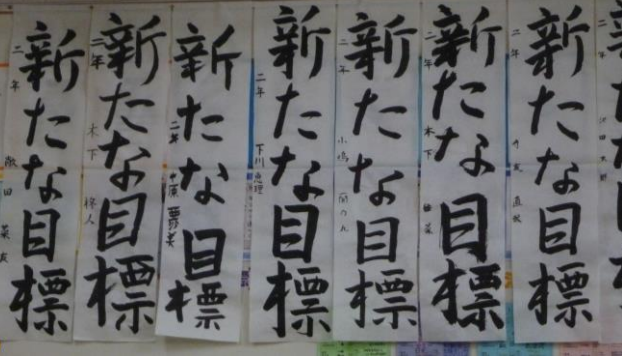 新たな目標
二年
新たな目標
二年 木下
新たな目標
二年 小嶋
新たな目標
二年 下川
新たな目標
二年 中原
新たな目標
二年 木下
新たな目標
二年